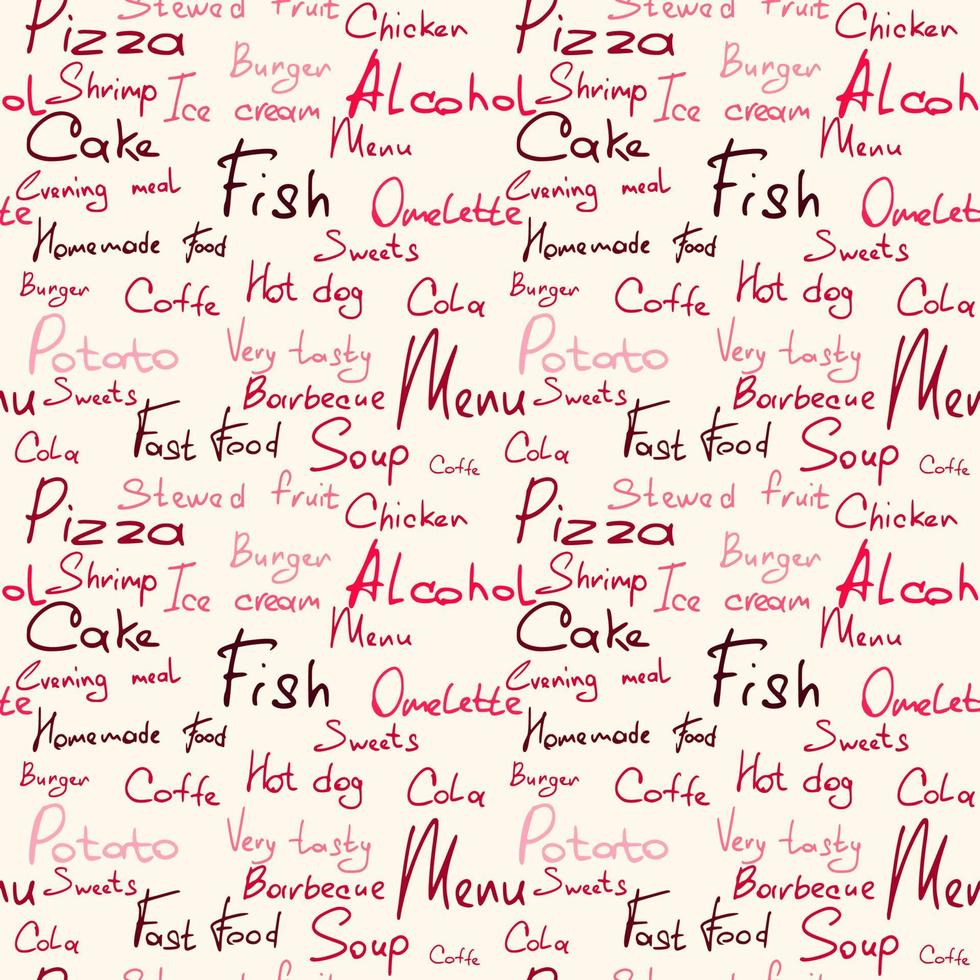 Stewed fruit Stewed fruit
Pizza Chicken Pizza Chicken
Burger Burger
oL Shrimp Ice cream ALcohoL Shrimp Ice cream ALcoh
Cake Menu Cake Menu
Evening meal Fish Evening meal Fish
te OmeLette OmeLet
Homemade Food Sweets Homemade Food Sweets
Burger Coffe Hot dog Cola Burger Coffe Hot dog Cola
Potato Very tasty Potato Very tasty
nu Sweets Barbecue Menu Sweets Barbecue Men
Cola Fast Food Soup Coffe Cola Fast Food Soup Coffe
Stewed fruit Stewed fruit
Pizza Chicken Pizza Chicken
Burger Burger
oL Shrimp Ice cream ALcohoL Shrimp Ice cream ALcoh
Cake Menu Cake Menu
Evening meal Fish Evening meal Fish
te OmeLette OmeLet
Homemade Food Sweets Homemade Food Sweets
Burger Coffe Hot dog Cola Burger Coffe Hot dog Cola
Potato Very tasty Potato Very tasty
nu Sweets Barbecue Menu Sweets Barbecue Men
Cola Fast Food Soup Coffe Cola Fast Food Soup Coffe